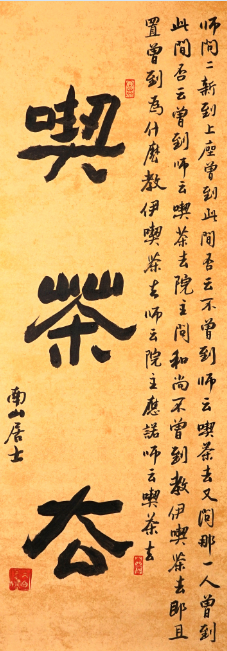 师問二新到上座曾到此間否云不曾到师云喫茶去又問那一人曾到
此間否云曾到师云喫茶去院主問和尚不曾到教伊喫茶去即且
置曾到為什麽教伊喫茶去师云院主應諾师云喫茶去
喫茶去
南山居士